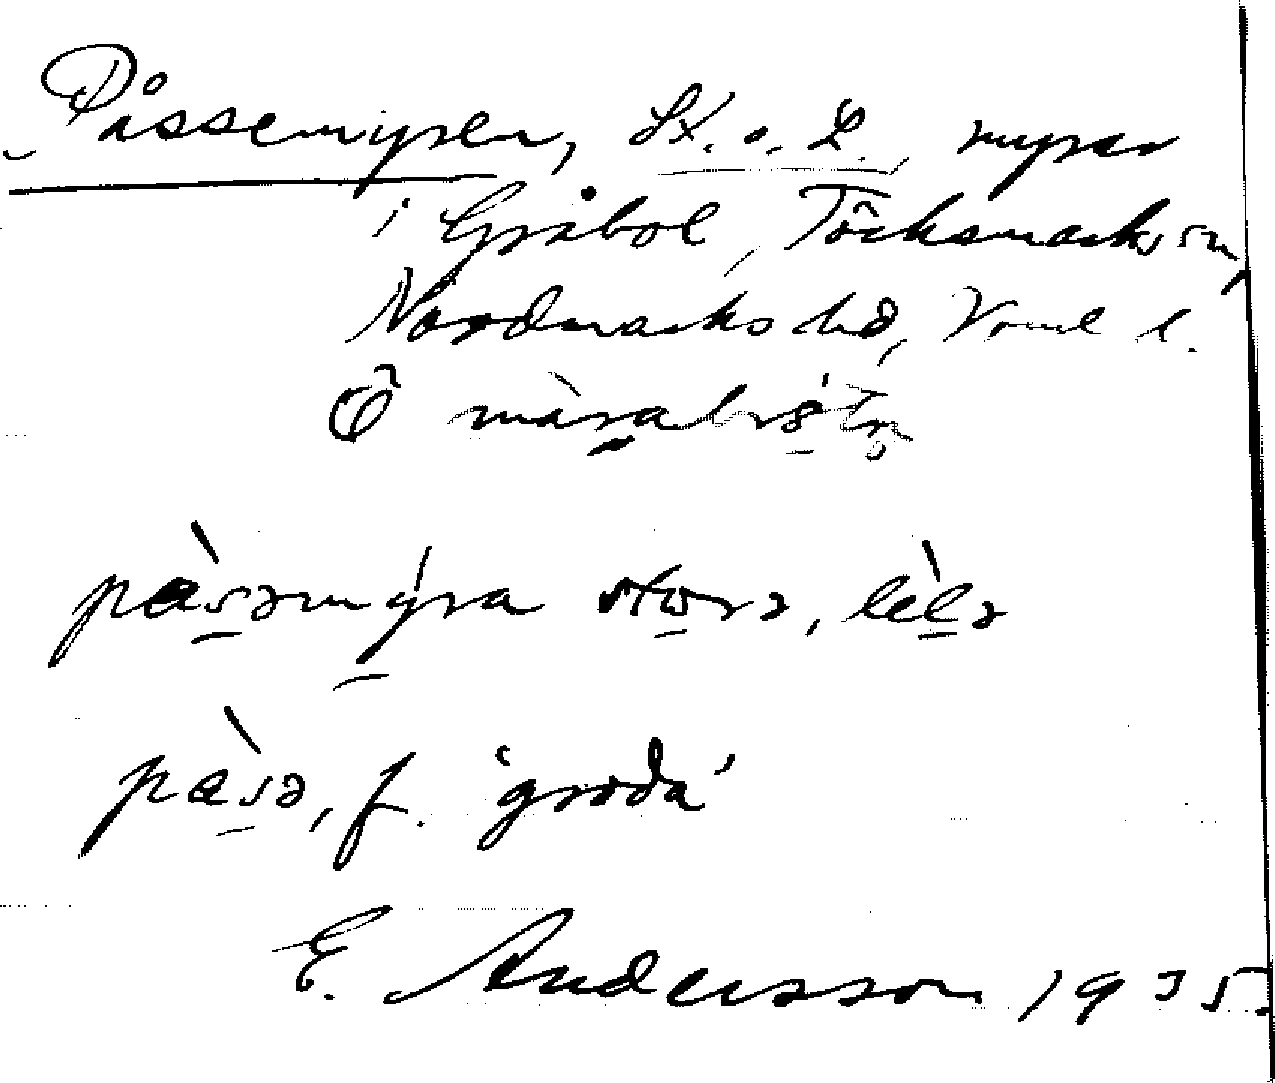 Påssemyren, St. o. L., myrar
i Gråbol, Töcksmarks sn,
Nordmarks hd, Värml. l.
Ö
pàsəmýra storə, lèlə
pàsə, f. 'groda'
E. Andersson 1935.